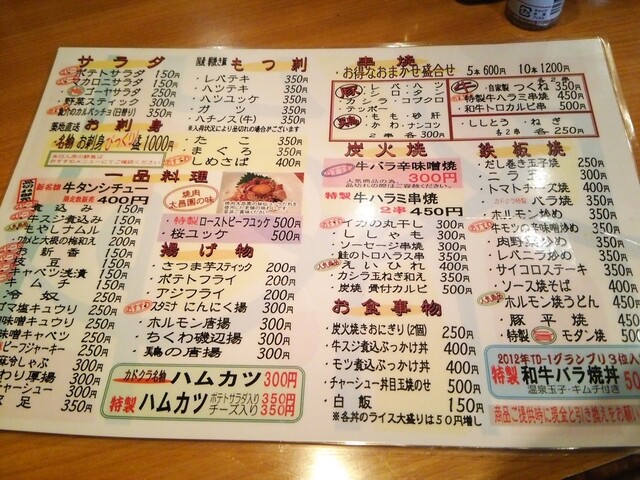 サラダ
ポテトサラダ 150円
マカロニサラダ 150円
ゴーヤサラダ 250円
野菜スティック 300円
魚介のカルパッチョ(日替り) 350円
築地直送 お刺身
名物 お刺身びっくり盛 1000円
一品料理
新名物 牛タンシチュー
限定数販売 400円
煮込み
牛スジ煮込み
もやしナムル
ワカメと大根の梅和え 200円
お新香 200円
キャベツ浅漬 150円
キムチ 150円
冷奴 250円
ゴマ塩キュウリ 250円
味噌キュウリ
味噌キャベツ
ビーフジャーキー
もつ刺
レバテキ 350円
ハツテキ 350円
ハツユッケ 350円
ガツ 350円
ハチノス(牛) 350円
※入荷状況により品切れの場合がございます
たこ 350円
まぐろ 350円
しめさば 400円
焼肉
大昌園の味
特製 ローストビーフユッケ 500円
桜ユッケ 500円
揚げ物
さつま芋スティック 200円
ポテトフライ 200円
アジフライ 200円
スタミナにんにく揚 300円
ホルモン唐揚 300円
ちくわ磯辺揚 300円
鶏の唐揚 300円
カドクラ名物 ハムカツ 300円
特製 ハムカツ ポテトサラダ入り 350円
チーズ入り 350円
串焼
お得なおまかせ盛合せ 5本600円 10本1200円
豚
レバ ハツ
シロ ハラミ
カシラ コブクロ
テッポー
鶏
もも 砂肝
かわ ナンコツ
2串 各300円
牛
自家製 つくね 350円
特製牛ハラミ串焼 450円
和牛トロカルビ串 500円
ししとう ねぎ
各2串 250円
炭火焼
牛バラ辛味噌焼
300円
人気商品の為
品切れの際はご容赦ください。
特製 牛ハラミ串焼
2串 450円
イカの丸干し 300円
ししゃも 300円
ソーセージ串焼 300円
鮭のトロハラス串 350円
えいひれ 400円
カシラ玉ねぎ和え 350円
炭焼 骨付カルビ 500円
お食事物
炭火焼きおにぎり(2個) 250円
牛スジ煮込ぶっかけ丼 400円
モツ煮込ぶっかけ丼 400円
チャーシュー丼目玉焼のせ 500円
白飯 150円
※各丼のライス大盛りは50円増し
鉄板焼
だし巻き玉子焼 250円
ニラ玉 300円
トマトチーズ焼 400円
カドクラ特製 バラ焼 350円
ホルモン炒め 350円
牛モツの辛味噌炒め 450円
肉野菜炒め 350円
レバニラ炒め 350円
サイコロステーキ 350円
ソース焼そば 400円
ホルモン焼うどん 450円
豚平焼 450円
特製 モダン焼 500円
2012年TD-1グランプリ3位入
特製 和牛バラ焼丼
温泉玉子・キムチ付き
商品ご提供時に現金と引き換えをお願い